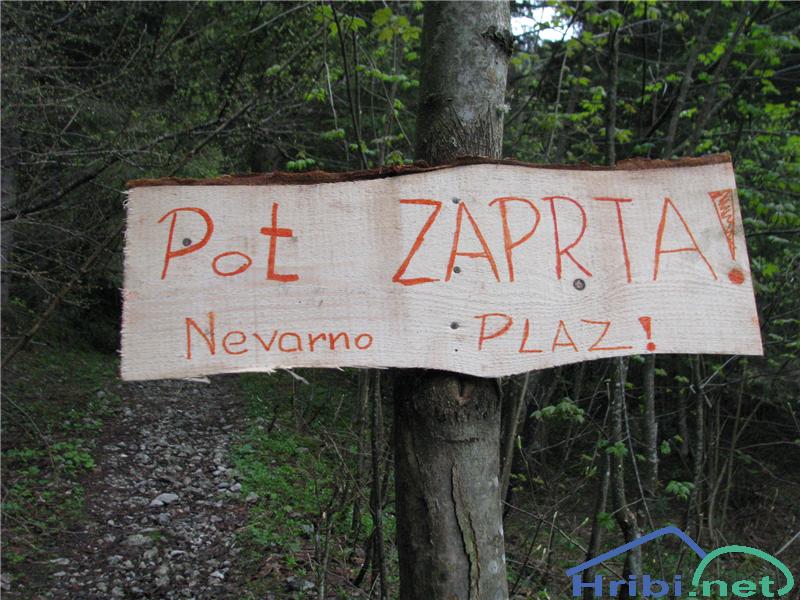 Pot ZAPRTA!
Nevarno PLAZ!
Hribi.net